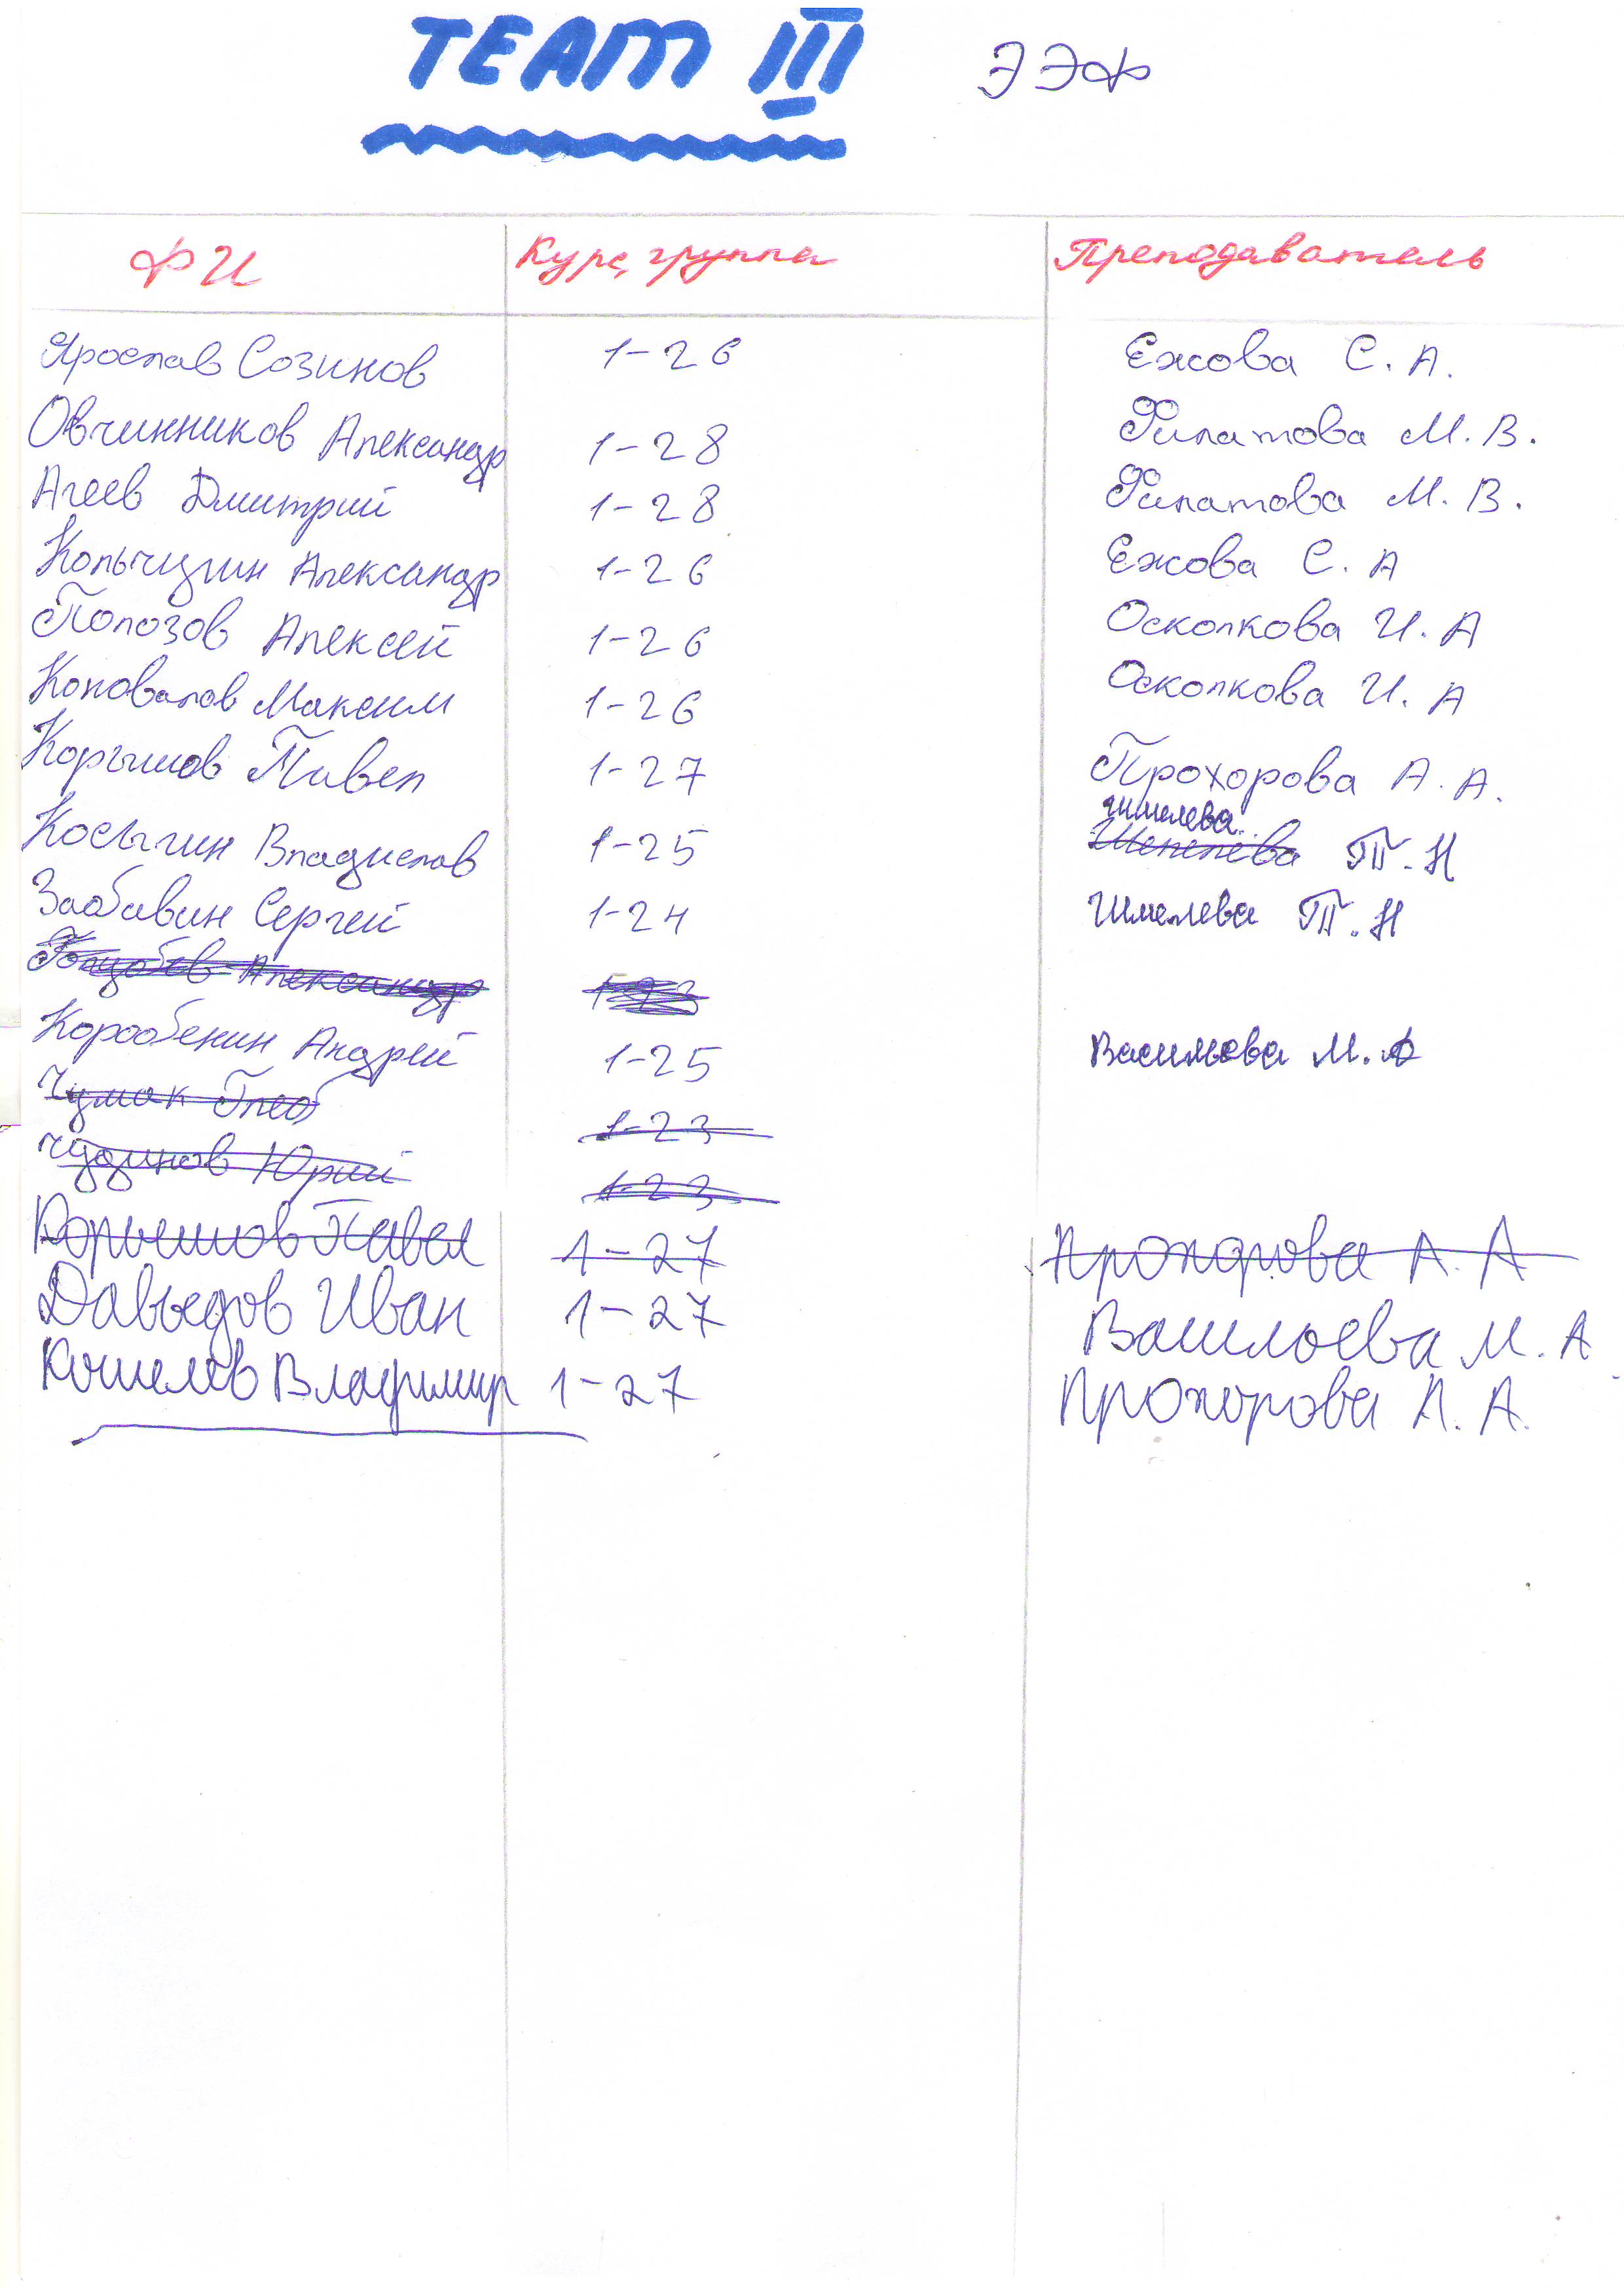 TEAM III ЭЭФ
ФИ Курс, группа Преподаватель
Ярослав Созинов 1-26 Ежова С. А.
Овчинников Александр 1-28 Филатова М. В.
Агеев Дмитрий 1-28 Филатова М. В.
Кольчугин Александр 1-26 Ежова С. А
Полозов Алексей 1-26 Осколкова И. А
Коновалов Максим 1-26 Осколкова И. А
Корышов Павел 1-27 Прохорова А. А.
Шмелева
Косыгин Владислав 1-25 Шепелева Т. Н
Забавин Сергей 1-24 Шмелева Т. Н
Голубев Александр 1-23
Коробенин Андрей 1-25 Васильева М. А
Чумак Глеб 1-23
Чудинов Юрий 1-23
Корышов Павел 1-27 Прохорова А. А
Давыдов Иван 1-27 Васильева М. А
Кошелев Владимир 1-27 Прохорова А. А.